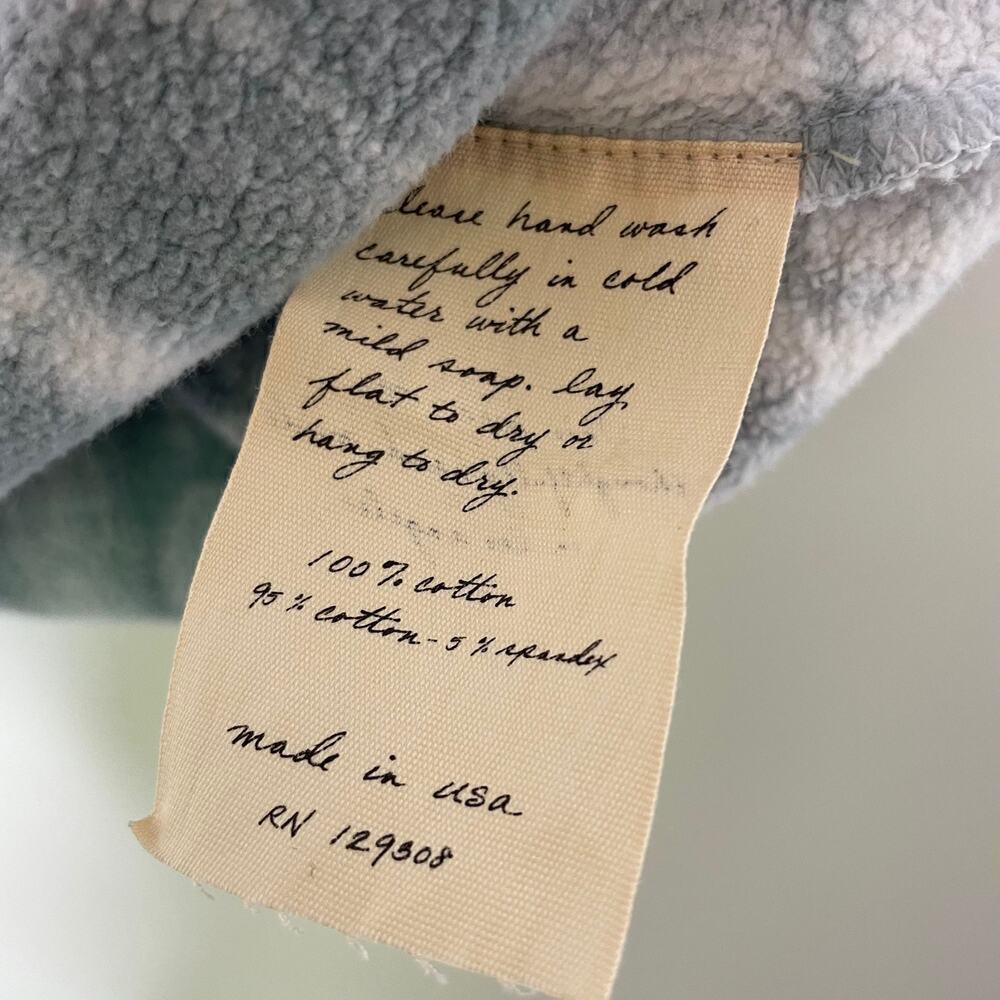 please hand wash
carefully in cold
water with a
mild soap. lay
flat to dry or
hang to dry.
100% cotton
95% cotton-5% spandex
made in usa
RN 129308